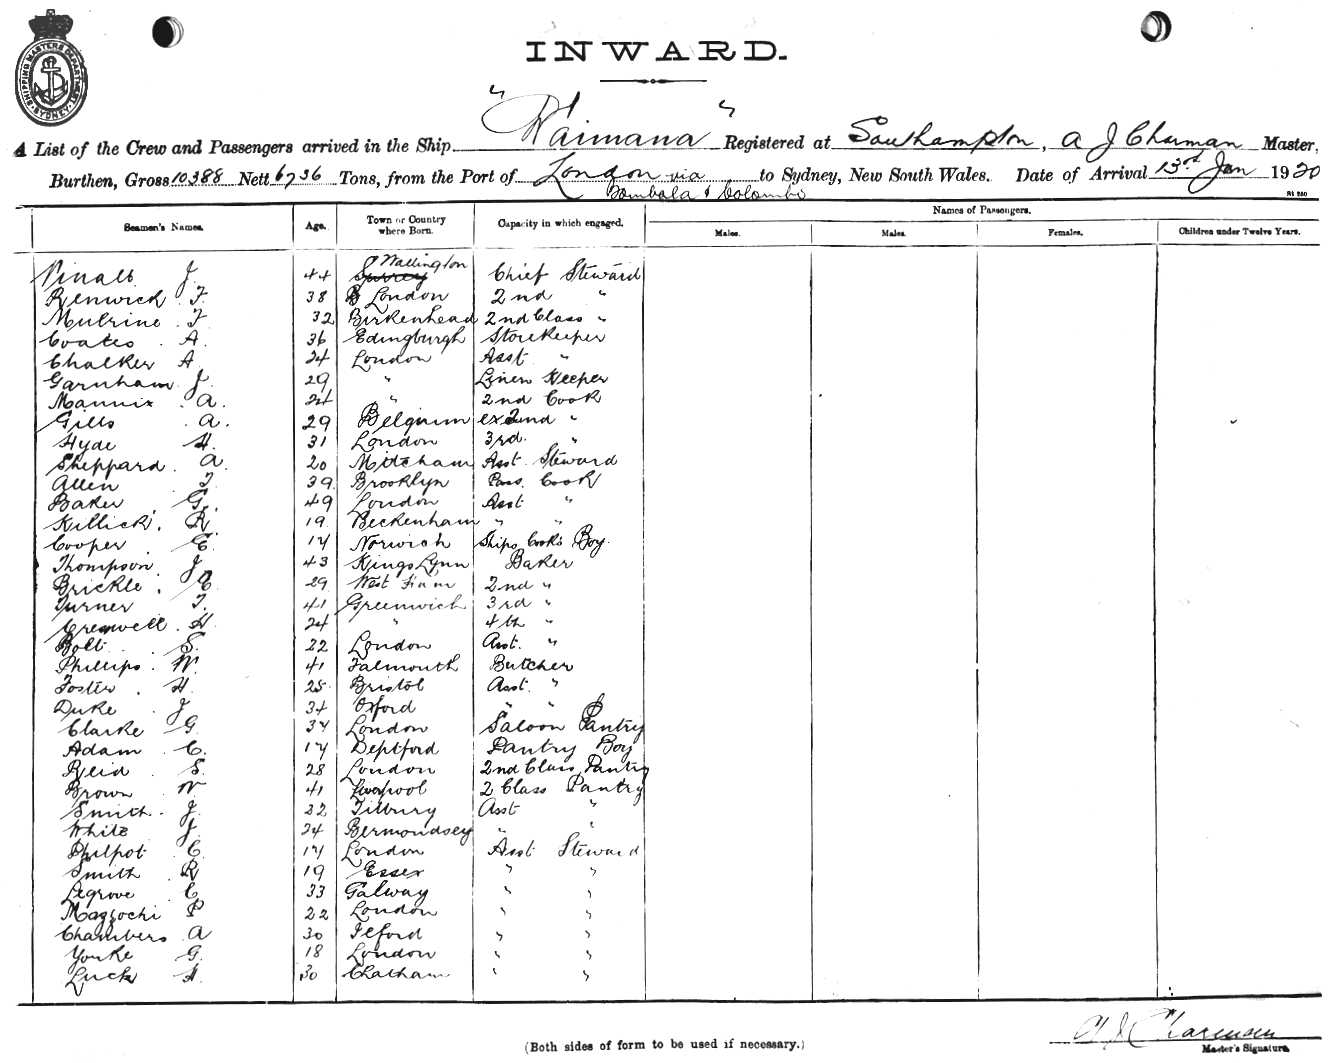 SHIPPING MASTERS DEPARTMENT SYDNEY
INWARD.
A List of the Crew and Passengers arrived in the Ship "Waimana" Registered at Southampton, A J Charman Master,
Burthen, Gross 10388 Nett 6736 Tons, from the Port of London via to Sydney, New South Wales. Date of Arrival 13rd Jan 1920
Bombala & Colombo
Seamen's Names. Age. Town or Country where Born. Capacity in which engaged. Names of Passengers.
Males. Males. Females. Children under Twelve Years.
Vinall J. 44 Wallington Surrey Chief Steward
Renwick F. 38 London 2nd "
Mulrine F. 32 Birkenhead 2nd Class "
Coates A. 36 Edingburgh Storekeeper
Chalker A 24 London Asst "
Garnham J. 29 " Linen Keeper
Mannix A. 24 " 2nd Cook
Gills A. 29 Belgium ex 2nd "
Hyde H. 31 London 3rd "
Sheppard A. 20 Mitcham Asst Steward
Allen T. 39 Brooklyn Pass. Cook
Baker G. 49 London Asst "
Killick R. 19 Beckenham " "
Cooper E. 17 Norwich Ships Cooks Boy.
Thompson J. 43 Kings Lynn Baker
Brickle E. 29 West Ham 2nd "
Turner T. 41 Greenwich 3rd "
Creswell H. 24 " 4th "
Bolt S. 22 London Asst. "
Phillips W. 41 Falmouth Butcher
Foster H. 25 Bristol Asst. "
Duke J. 34 Oxford " "
Clarke G. 37 London Saloon Pantry
Adam C. 17 Deptford Pantry Boy
Reid S. 28 London 2nd Class Pantry
Brown W. 41 Liverpool 2 Class Pantry
Smith J. 22 Tilbury Asst "
White J. 24 Bermondsey " "
Philpot C. 17 London Asst Steward
Smith R 19 Essex " "
Legrove C. 33 Galway " "
Mazzochi P 22 London " "
Chambers A 30 Ilford " "
Youle G. 18 London " "
Luck H. 30 Chatham " "
A J Charman
Master's Signature.
(Both sides of form to be used if necessary.)